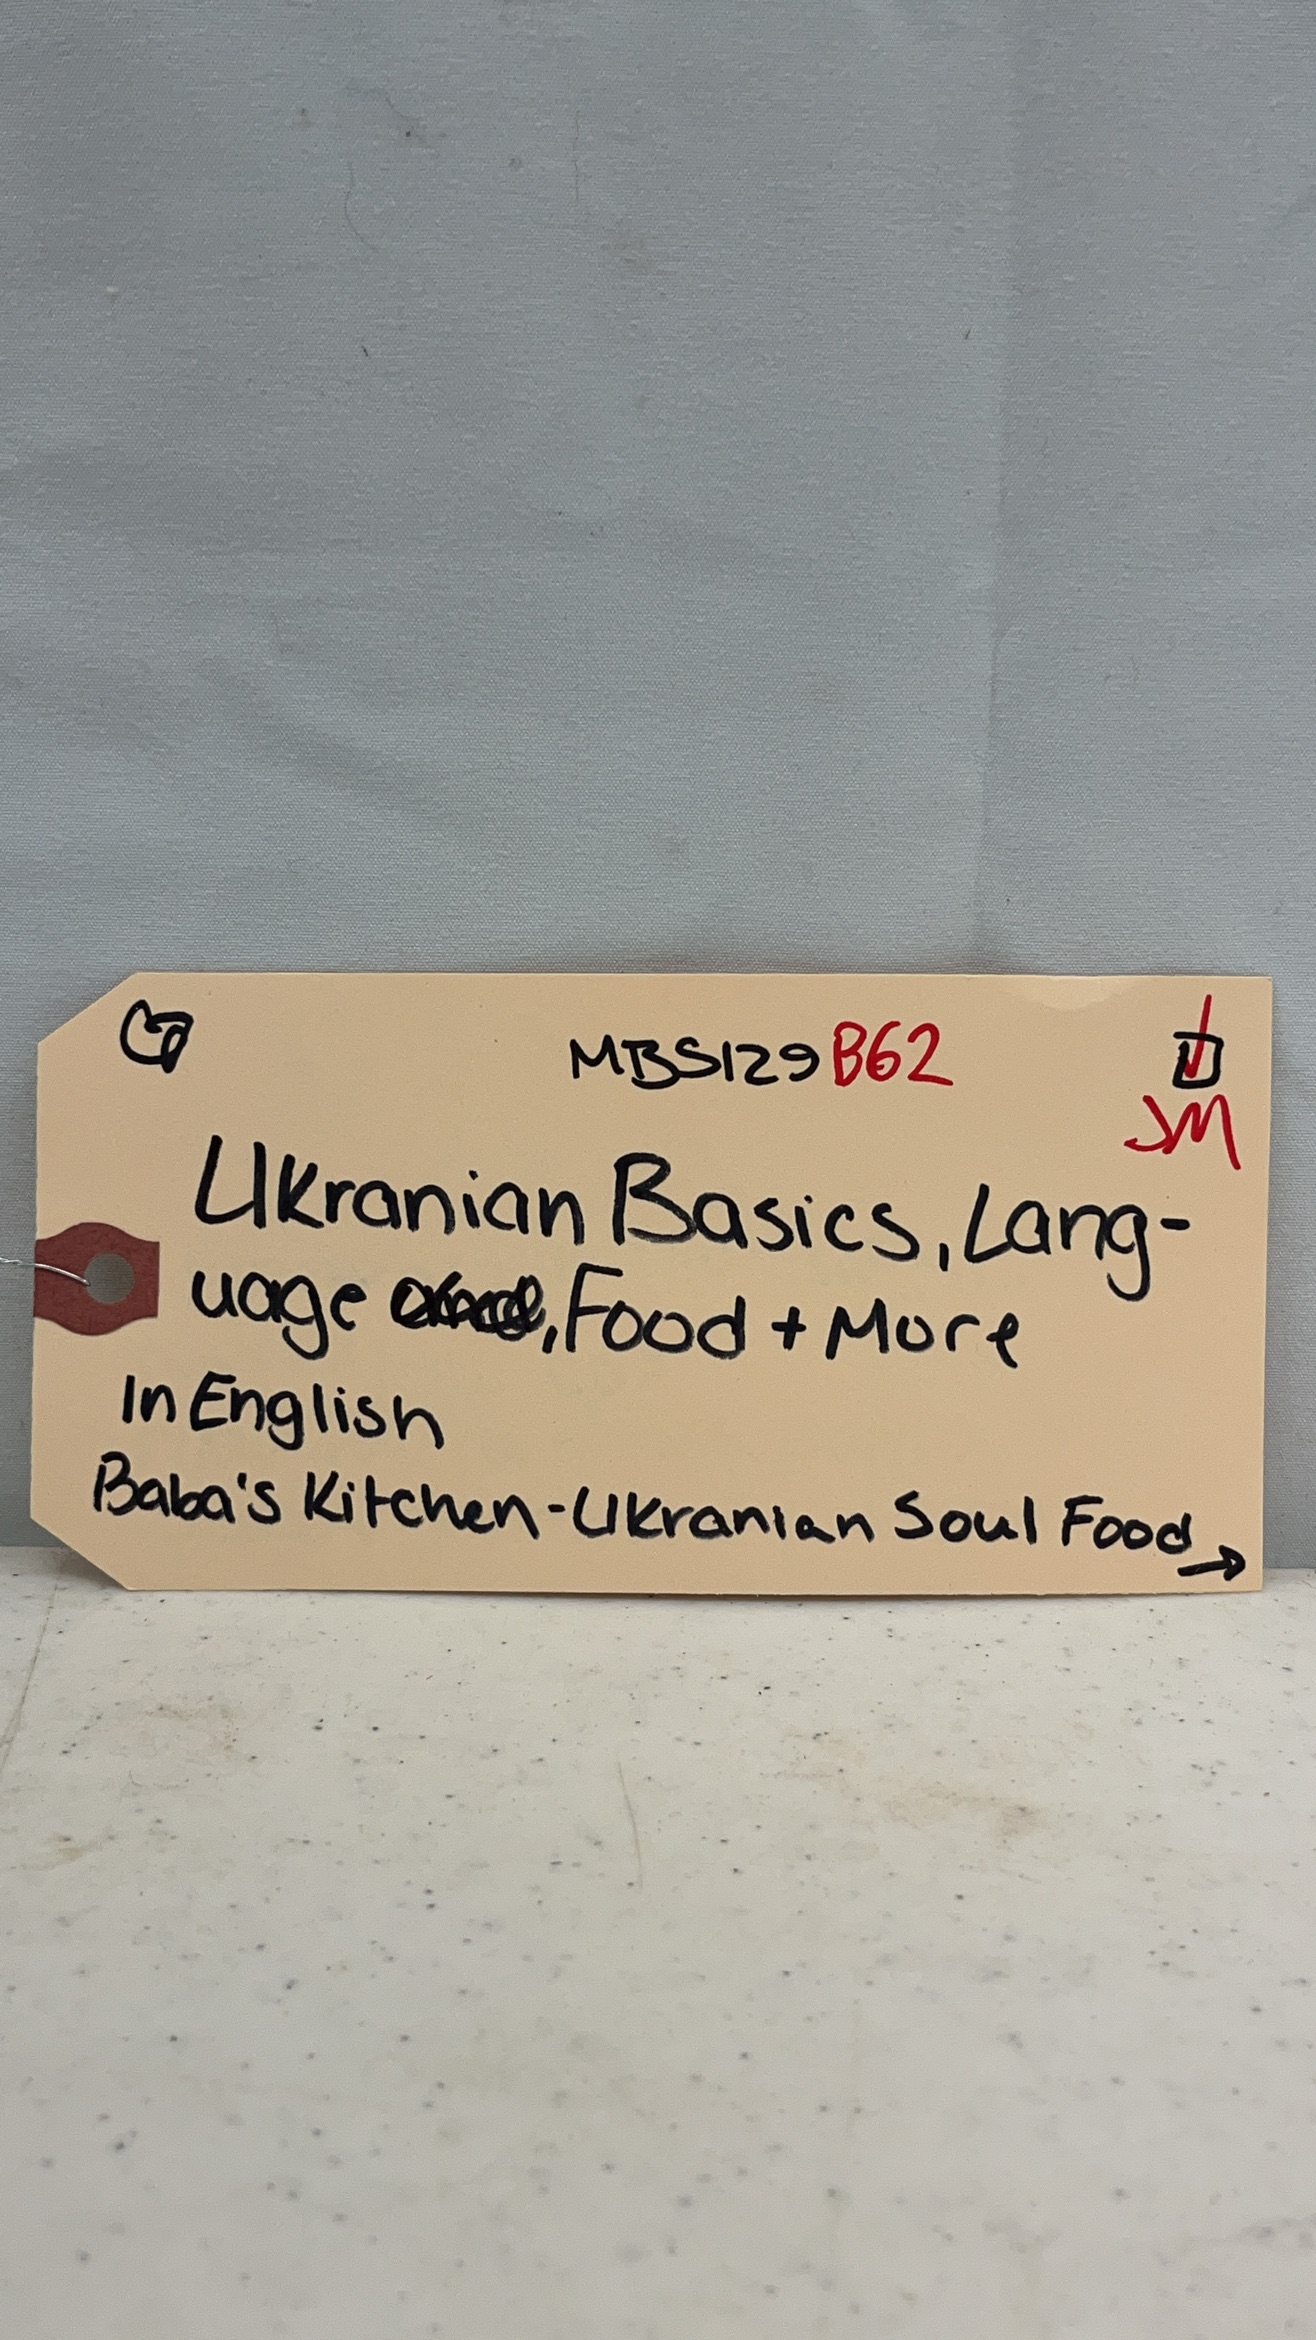 MBS129 B62
JM
Ukranian Basics, Lang-
uage, Food + More
In English
Baba's Kitchen - Ukranian Soul Food →